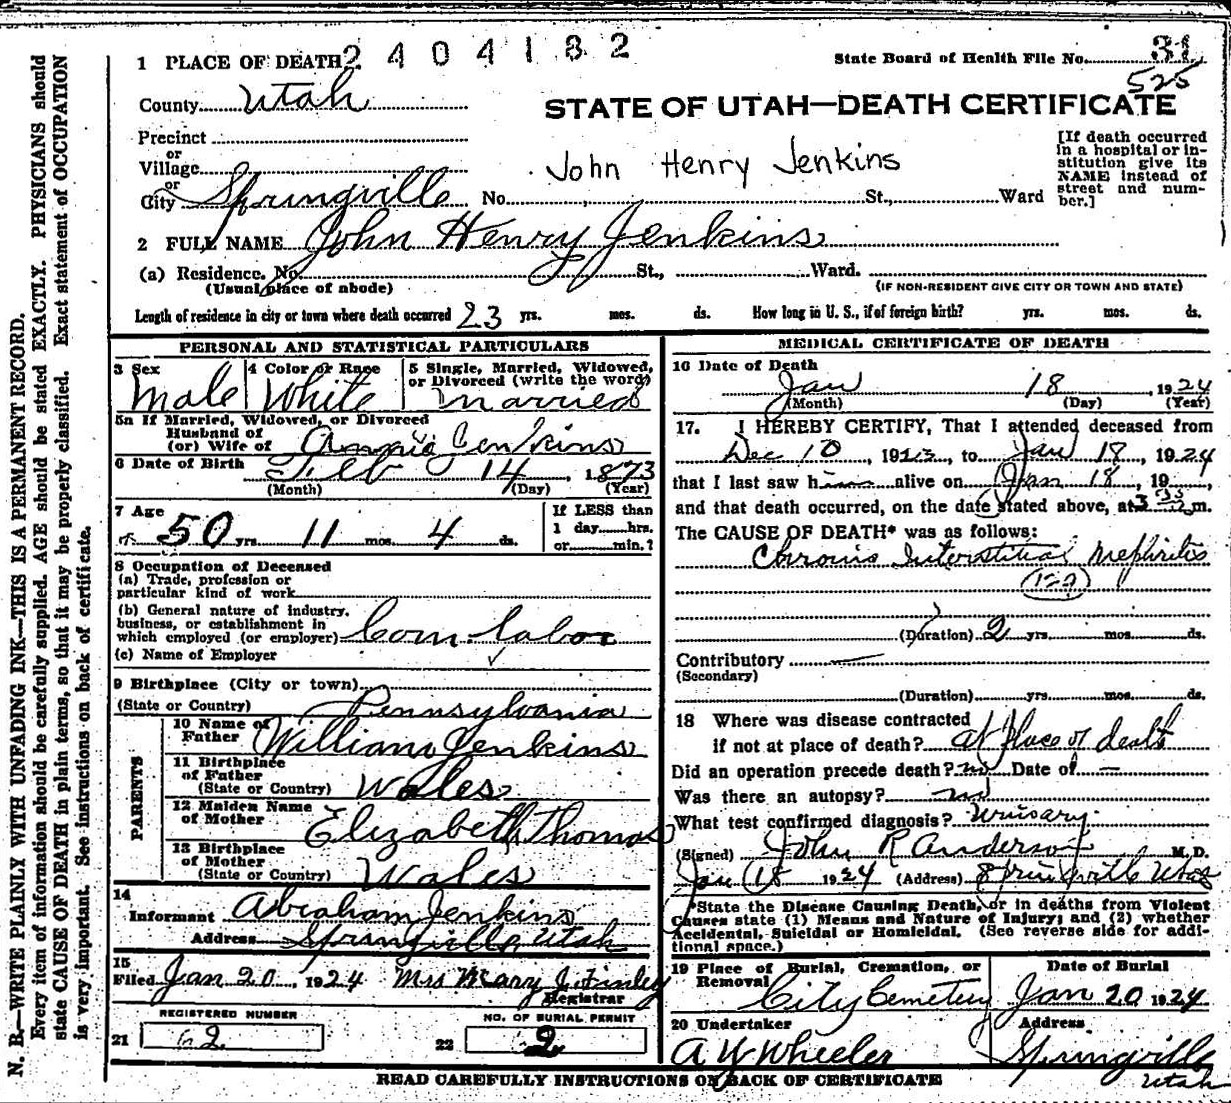 N. B.—WRITE PLAINLY WITH UNFADING INK—THIS IS A PERMANENT RECORD.
Every item of information should be carefully supplied. AGE should be stated EXACTLY. PHYSICIANS should
state CAUSE OF DEATH in plain terms, so that it may be properly classified. Exact statement of OCCUPATION
is very important. See instructions on back of certificate.
2404182
1 PLACE OF DEATH
State Board of Health File No. 31
525
County Utah
STATE OF UTAH—DEATH CERTIFICATE
Precinct
or
Village
or
City Springville No. St., Ward
John Henry Jenkins
[If death occurred
in a hospital or in-
stitution give its
NAME instead of
street and num-
ber.]
2 FULL NAME John Henry Jenkins
(a) Residence. No. St., Ward.
(Usual place of abode)
(IF NON-RESIDENT GIVE CITY OR TOWN AND STATE)
Length of residence in city or town where death occurred 23 yrs. mos. ds. How long in U. S., if of foreign birth? yrs. mos. ds.
PERSONAL AND STATISTICAL PARTICULARS
3 Sex
Male
4 Color or Race
White
5 Single, Married, Widowed,
or Divorced (write the word)
Married
5a If Married, Widowed, or Divorced
Husband of
(or) Wife of Annie Jenkins
6 Date of Birth Feb 14, 1873
(Month) (Day) (Year)
7 Age
50 yrs. 11 mos. 4 ds.
If LESS than
1 day hrs.
or min.?
8 Occupation of Deceased
(a) Trade, profession or
particular kind of work
(b) General nature of industry,
business, or establishment in
which employed (or employer) Com. labor
(c) Name of Employer
9 Birthplace (City or town)
(State or Country) Pennsylvania
PARENTS
10 Name of
Father William Jenkins
11 Birthplace
of Father
(State or Country) Wales
12 Maiden Name
of Mother Elizabeth Thomas
13 Birthplace
of Mother
(State or Country) Wales
14
Informant Abraham Jenkins
Address Springville, Utah
15
Filed Jan 20, 1924 Mrs Mary J. Finley
Registrar
REGISTERED NUMBER
21 62
NO. OF BURIAL PERMIT
22 2
MEDICAL CERTIFICATE OF DEATH
16 Date of Death
Jan 18, 1924
(Month) (Day) (Year)
17. I HEREBY CERTIFY, That I attended deceased from
Dec 10, 19 , to Jan 18, 1924
that I last saw him alive on Jan 18, 19
and that death occurred, on the date stated above, at 3 m.
The CAUSE OF DEATH* was as follows:
Chronis Interstitial Nephritis
(129)
(Duration) 2 yrs. mos. ds.
Contributory —
(Secondary)
(Duration) yrs. mos. ds.
18 Where was disease contracted
if not at place of death? at place of death
Did an operation precede death? no Date of —
Was there an autopsy? no
What test confirmed diagnosis? Urinary.
(Signed) John R Anderson M.D.
Jan 18 1924 (Address) Springville Utah
*State the Disease Causing Death, or in deaths from Violent
Causes state (1) Means and Nature of Injury; and (2) whether
Accidental, Suicidal or Homicidal. (See reverse side for addi-
tional space.)
19 Place of Burial, Cremation, or
Removal
City Cemetery
Date of Burial
Jan 20 1924
20 Undertaker
A Y Wheeler
Address
Springville
Utah
READ CAREFULLY INSTRUCTIONS ON BACK OF CERTIFICATE